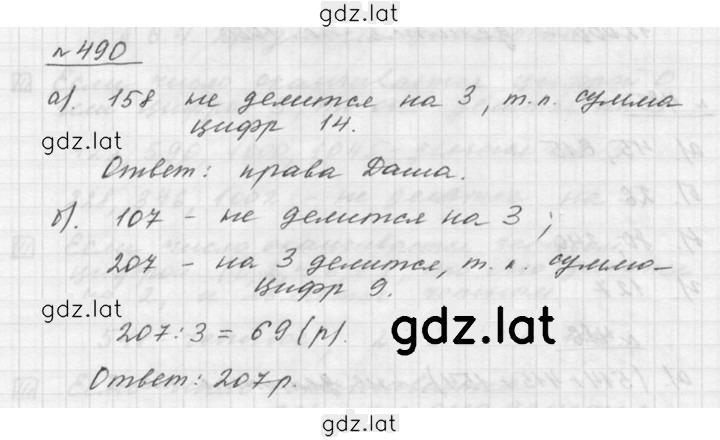 gdz.lat
№ 490
а). 158 не делится на 3, т.к. сумма
gdz.lat цифр 14.
Ответ: права Даша.
gdz.lat
б). 107 - не делится на 3;
207 - на 3 делится, т.к. сумма-
цифр 9.
gdz.lat
207:3 = 69 (р).
gdz.lat
Ответ: 207р.
gdz.lat